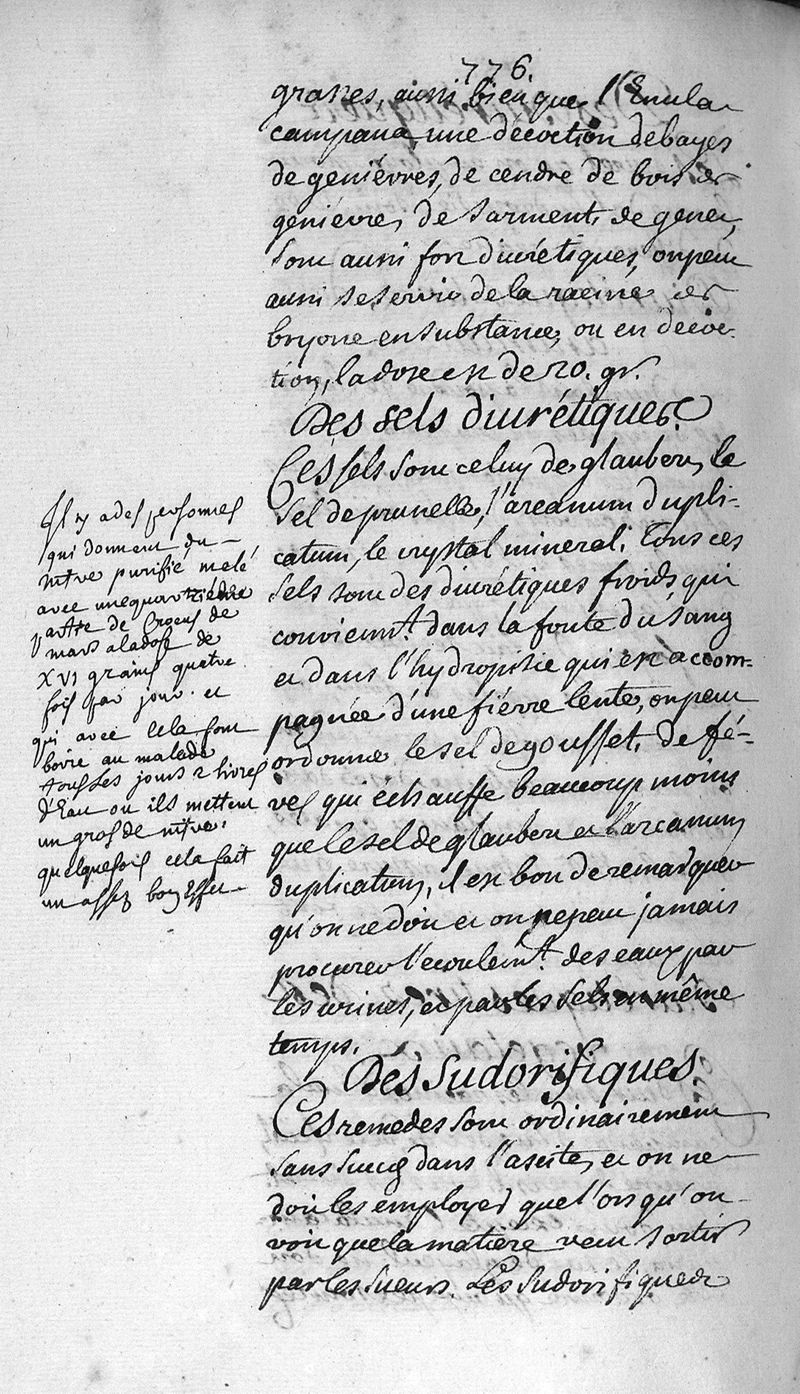 776.
graves, aussi bien que l'Enula
campana, une décoction de bayes
de geniévres, de cendre de bois de
geniévre, de sarment, de genet,
sont aussi fort diurétiques, on peut
aussi se servir de la racine de
bryone en substance, ou en decoc-
tion, la dose est de 20. gr.
Des sels diurétiques.
Ces sels sont celuy de glauber, le
sel de prunelle, l'arcanum dupli-
catum, le crystal mineral. Tous ces
sels sont des diurétiques froids, qui
convienn.t dans la fonte du sang
et dans l'hydropisie qui est accom-
pagnée d'une fiévre lente, on peut
ordonner le sel de gousset, de fé-
ves qui échauffe beaucoup moins
que le sel de glauber et l'arcanum
duplicatum, il est bon de remarquer
qu'on ne doit et on ne peut jamais
procurer l'ecoulem.t des eaux par
les urines, et par les sels en même
temps.
Des Sudorifiques.
Ces remedes sont ordinairement
sans succez dans l'ascite, et on ne
doit les employer que l'orsqu'on
voit que la matière veut sortir
par les sueurs. Les sudorifiques
Il y a des personnes
qui donnent du
nitre purifié melé
avec une quatriéme
partie de Crocus de
mars a la dose de
XVI grains quatre
fois par jour. et
qui avec cela font
boire au malade
tous les jours 2 livres
d'Eau ou ils mettent
un gros de nitre.
quelquefois cela fait
un assez bon effet